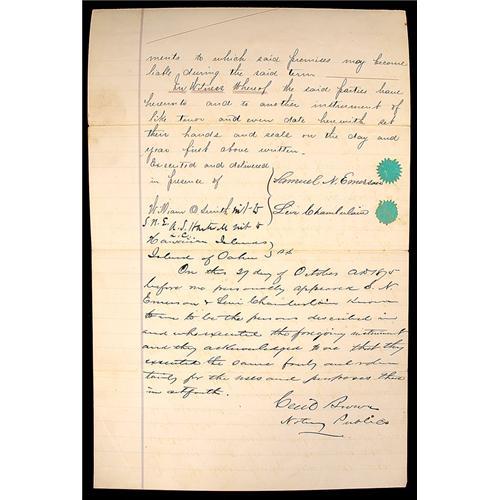 ments to which said premises may become
liable during the said term
In Witness Whereof the said parties have
hereunto and to another instrument of
like tenor and even date herewith set
their hands and seals on the day and
year first above written.
Executed and delivered
in presence of
Samuel N. Emerson
William O Smith wit to
Levi Chamberlain
S. N. E. A. S. Hartwell wit to
L. C.
Hawaiian Islands
Island of Oahu } SS
On this 29 day of October AD 1875
before me personally appeared S. N
Emerson & Levi Chamberlain known
to me to be the persons described in
and who executed the foregoing instrument
and they acknowledged to me that they
executed the same freely and volun
tarily for the uses and purposes there
in set forth.
Cecil Brown
Notary Public